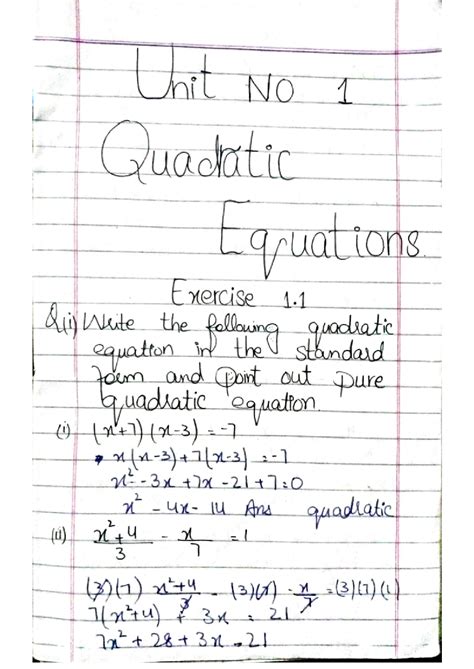 Unit No 1
Quadratic
Equations
Exercise 1.1
Q(i) Write the following quadratic
equation in the standard
form and point out pure
quadratic equation.
(i) (x+7) (x-3) = -7
x(x-3)+7(x-3) = -7
x² - 3x + 7x - 21 + 7 = 0
x² - 4x - 14 Ans quadratic
(ii) x²+4/3 - x/7 = 1
(3)(7) x²+4/3 - (3)(7) · x/7 = (3)(7)(1)
7(x²+4) + 3x = 21
7x² + 28 + 3x = 21